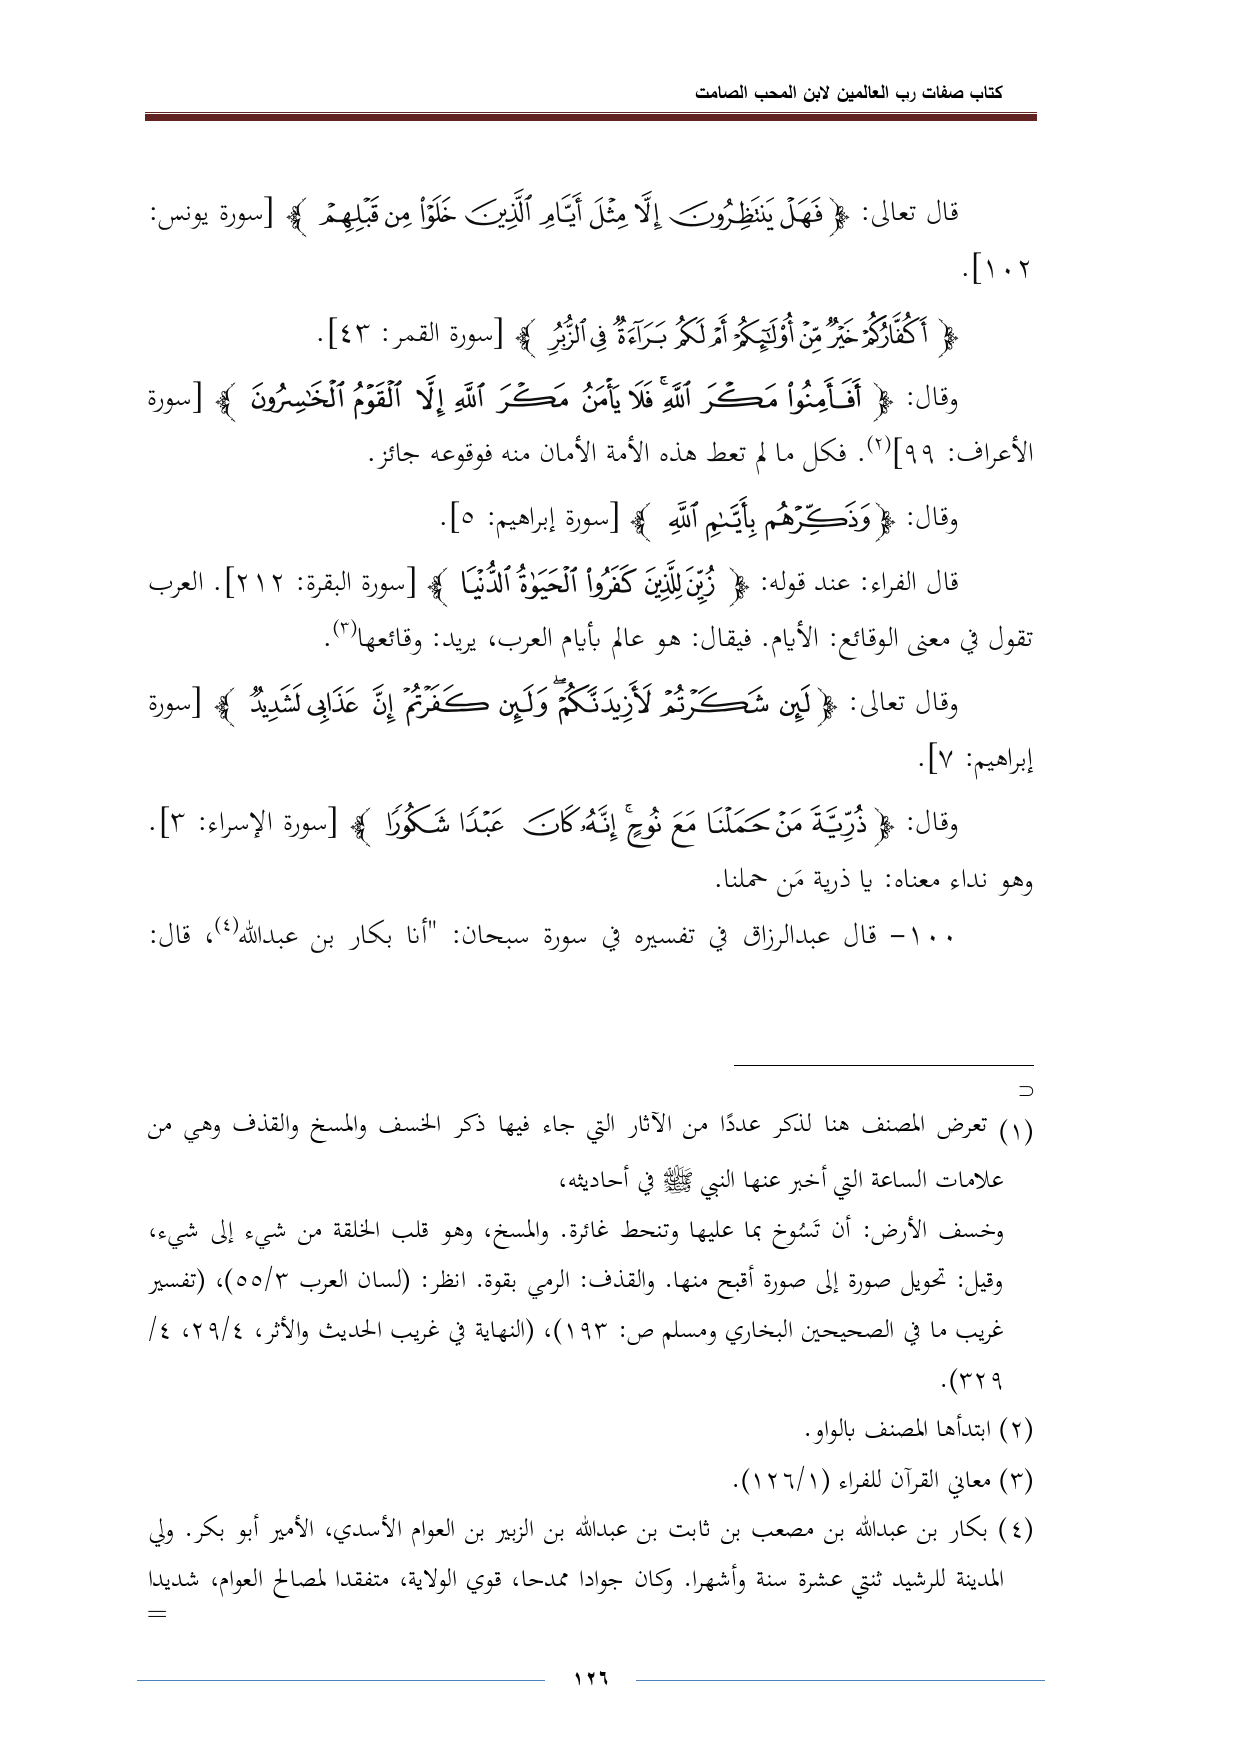 كتاب صفات رب العالمين لابن المحب الصامت
قال تعالى: ﴿ فَهَلْ يَنتَظِرُونَ إِلَّا مِثْلَ أَيَّامِ ٱلَّذِينَ خَلَوْا۟ مِن قَبْلِهِمْ ﴾ [سورة يونس:
١٠٢].
﴿ أَكُفَّارُكُمْ خَيْرٌ مِّنْ أُو۟لَـٰٓئِكُمْ أَمْ لَكُم بَرَآءَةٌ فِى ٱلزُّبُرِ ﴾ [سورة القمر: ٤٣].
وقال: ﴿ أَفَأَمِنُوا۟ مَكْرَ ٱللَّهِ ۚ فَلَا يَأْمَنُ مَكْرَ ٱللَّهِ إِلَّا ٱلْقَوْمُ ٱلْخَـٰسِرُونَ ﴾ [سورة
الأعراف: ٩٩](٢). فكل ما لم تعط هذه الأمة الأمان منه فوقوعه جائز.
وقال: ﴿ وَذَكِّرْهُم بِأَيَّىٰمِ ٱللَّهِ ﴾ [سورة إبراهيم: ٥].
قال الفراء: عند قوله: ﴿ زُيِّنَ لِلَّذِينَ كَفَرُوا۟ ٱلْحَيَوٰةُ ٱلدُّنْيَا ﴾ [سورة البقرة: ٢١٢]. العرب
تقول في معنى الوقائع: الأيام. فيقال: هو عالم بأيام العرب، يريد: وقائعها(٣).
وقال تعالى: ﴿ لَئِن شَكَرْتُمْ لَأَزِيدَنَّكُمْ ۖ وَلَئِن كَفَرْتُمْ إِنَّ عَذَابِى لَشَدِيدٌ ﴾ [سورة
إبراهيم: ٧].
وقال: ﴿ ذُرِّيَّةَ مَنْ حَمَلْنَا مَعَ نُوحٍ ۚ إِنَّهُۥ كَانَ عَبْدًا شَكُورًا ﴾ [سورة الإسراء: ٣].
وهو نداء معناه: يا ذرية مَن حملنا.
١٠٠- قال عبدالرزاق في تفسيره في سورة سبحان: "أنا بكار بن عبدالله(٤)، قال:
⊃
(١) تعرض المصنف هنا لذكر عددًا من الآثار التي جاء فيها ذكر الخسف والمسخ والقذف وهي من
علامات الساعة التي أخبر عنها النبي ﷺ في أحاديثه،
وخسف الأرض: أن تَسُوخ بما عليها وتنحط غائرة. والمسخ، وهو قلب الخلقة من شيء إلى شيء،
وقيل: تحويل صورة إلى صورة أقبح منها. والقذف: الرمي بقوة. انظر: (لسان العرب ٥٥/٣)، (تفسير
غريب ما في الصحيحين البخاري ومسلم ص: ١٩٣)، (النهاية في غريب الحديث والأثر، ٢٩/٤، ٤/
٣٢٩).
(٢) ابتدأها المصنف بالواو.
(٣) معاني القرآن للفراء (١٢٦/١).
(٤) بكار بن عبدالله بن مصعب بن ثابت بن عبدالله بن الزبير بن العوام الأسدي، الأمير أبو بكر. ولي
المدينة للرشيد ثنتي عشرة سنة وأشهرا. وكان جوادا ممدحا، قوي الولاية، متفقدا لمصالح العوام، شديدا
=
١٢٦